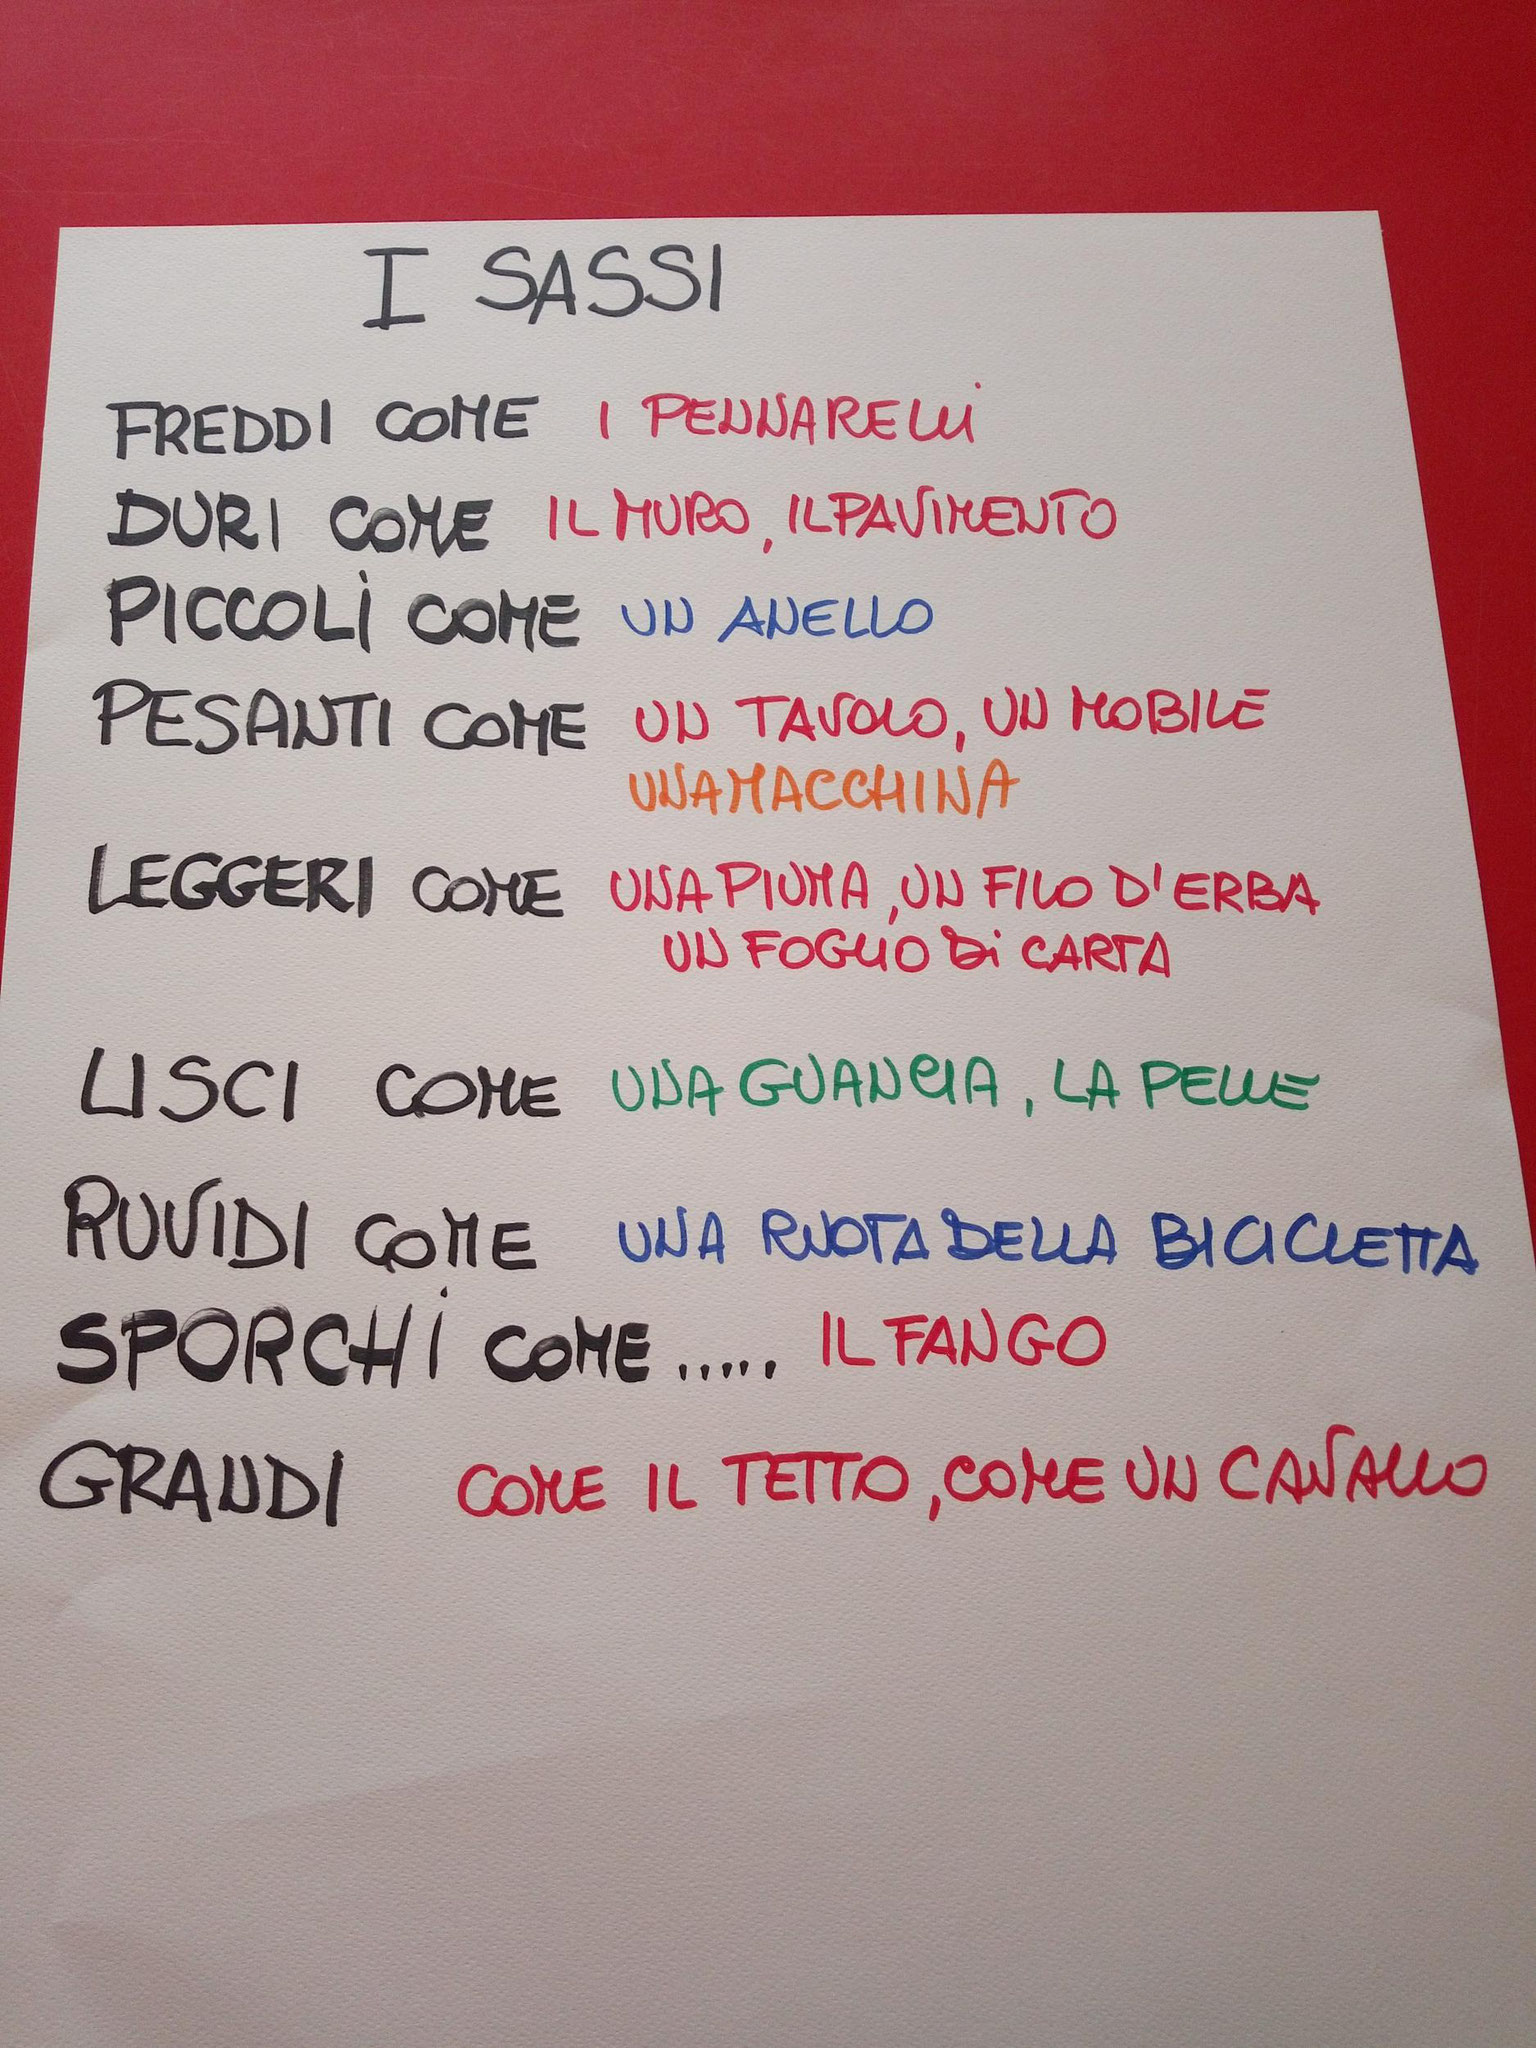 I SASSI
FREDDI COME I PENNARELLI
DURI COME IL MURO, IL PAVIMENTO
PICCOLI COME UN ANELLO
PESANTI COME UN TAVOLO, UN MOBILE
UNA MACCHINA
LEGGERI COME UNA PIUMA, UN FILO D'ERBA
UN FOGLIO DI CARTA
LISCI COME UNA GUANCIA, LA PELLE
RUVIDI COME UNA RUOTA DELLA BICICLETTA
SPORCHI COME ..... IL FANGO
GRANDI COME IL TETTO, COME UN CAVALLO